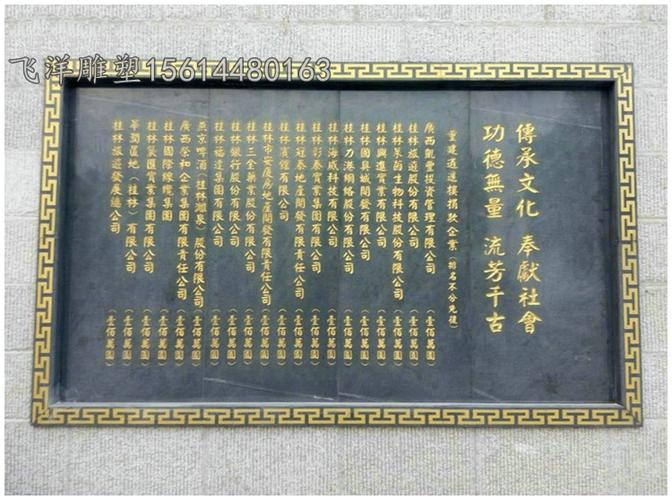 飞洋雕塑15614480163
傳承文化 奉獻社會
功德無量 流芳千古
重建逍遥樓捐款企業（排名不分先後）
廣西凱豐投資管理有限公司（壹佰萬圓）
桂林旅遊股份有限公司（壹佰萬圓）
桂林萊茵生物科技股份有限公司（壹佰萬圓）
桂林興進實業有限公司（壹佰萬圓）
桂林國奥城開發有限公司（壹佰萬圓）
桂林力港網絡股份有限公司（壹佰萬圓）
桂林海威科技有限公司（壹佰萬圓）
桂林彰泰實業集團有限公司（壹佰萬圓）
桂林冠泰房地産開發有限責任公司（壹佰萬圓）
桂林賓館有限公司（壹佰萬圓）
桂林市安厦房地産開發有限責任公司（壹佰萬圓）
桂林三金藥業股份有限公司（壹佰萬圓）
桂林銀行股份有限公司（壹佰萬圓）
桂林福達集團有限公司（壹佰萬圓）
燕京啤酒（桂林灕泉）股份有限公司（壹佰萬圓）
廣西榮和企業集團有限責任公司（壹佰萬圓）
桂林國際線纜集團（壹佰萬圓）
桂林㒷匯實業集團有限公司（壹佰萬圓）
華潤置地（桂林）有限公司（壹佰萬圓）
桂林旅遊發展總公司（壹佰萬圓）